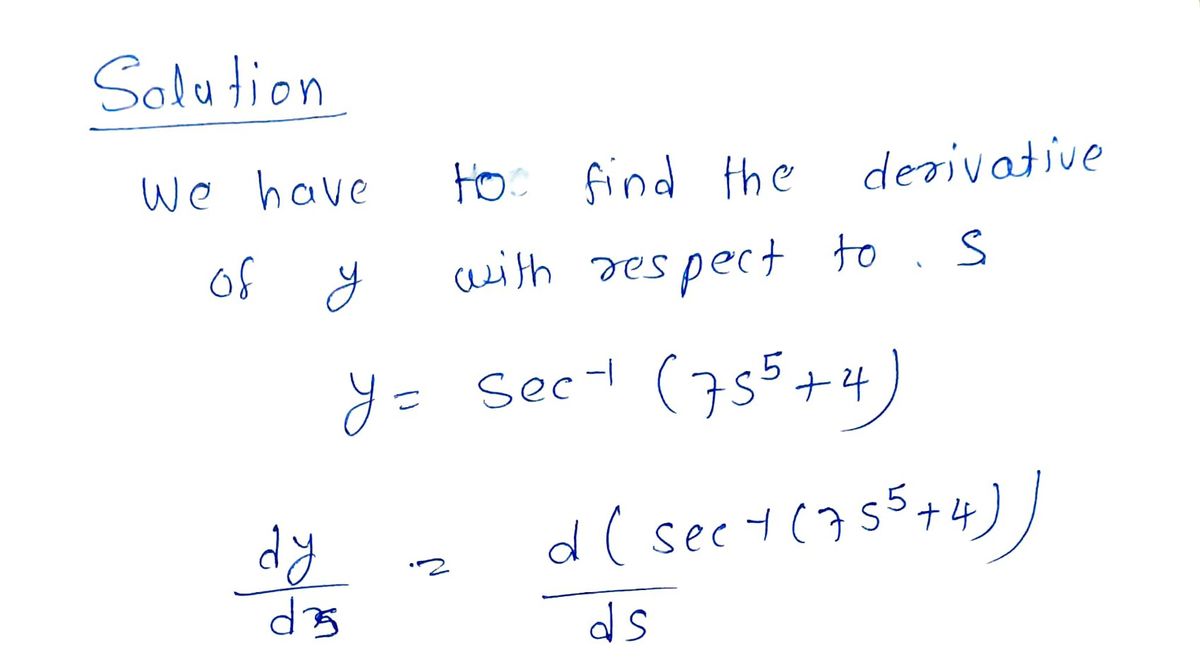 Solution
We have to find the derivative
of y with respect to . S
y = sec⁻¹ (7s⁵+4)
dy/ds = d(sec⁻¹(7s⁵+4))/ds